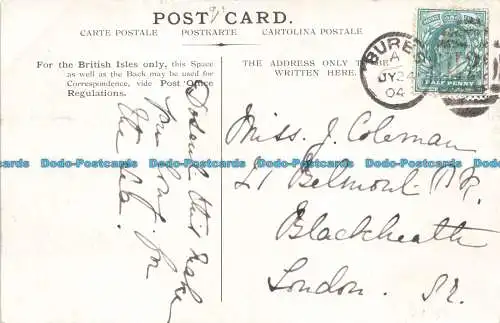 POST CARD.
CARTE POSTALE POSTKARTE CARTOLINA POSTALE
For the British Isles only, this Space
as well as the Back may be used for
Correspondence, vide Post Office
Regulations.
THE ADDRESS ONLY TO BE
WRITTEN HERE.
BURE
A
JY 24
04
HALF PENNY
Miss J. Coleman
21 Belmont
Blackheath
London. S.E.
this make
you long for
the sea.
Dodo-Postcards Dodo-Postcards Dodo-Postcards Dodo-Postcards Dodo-Postcards